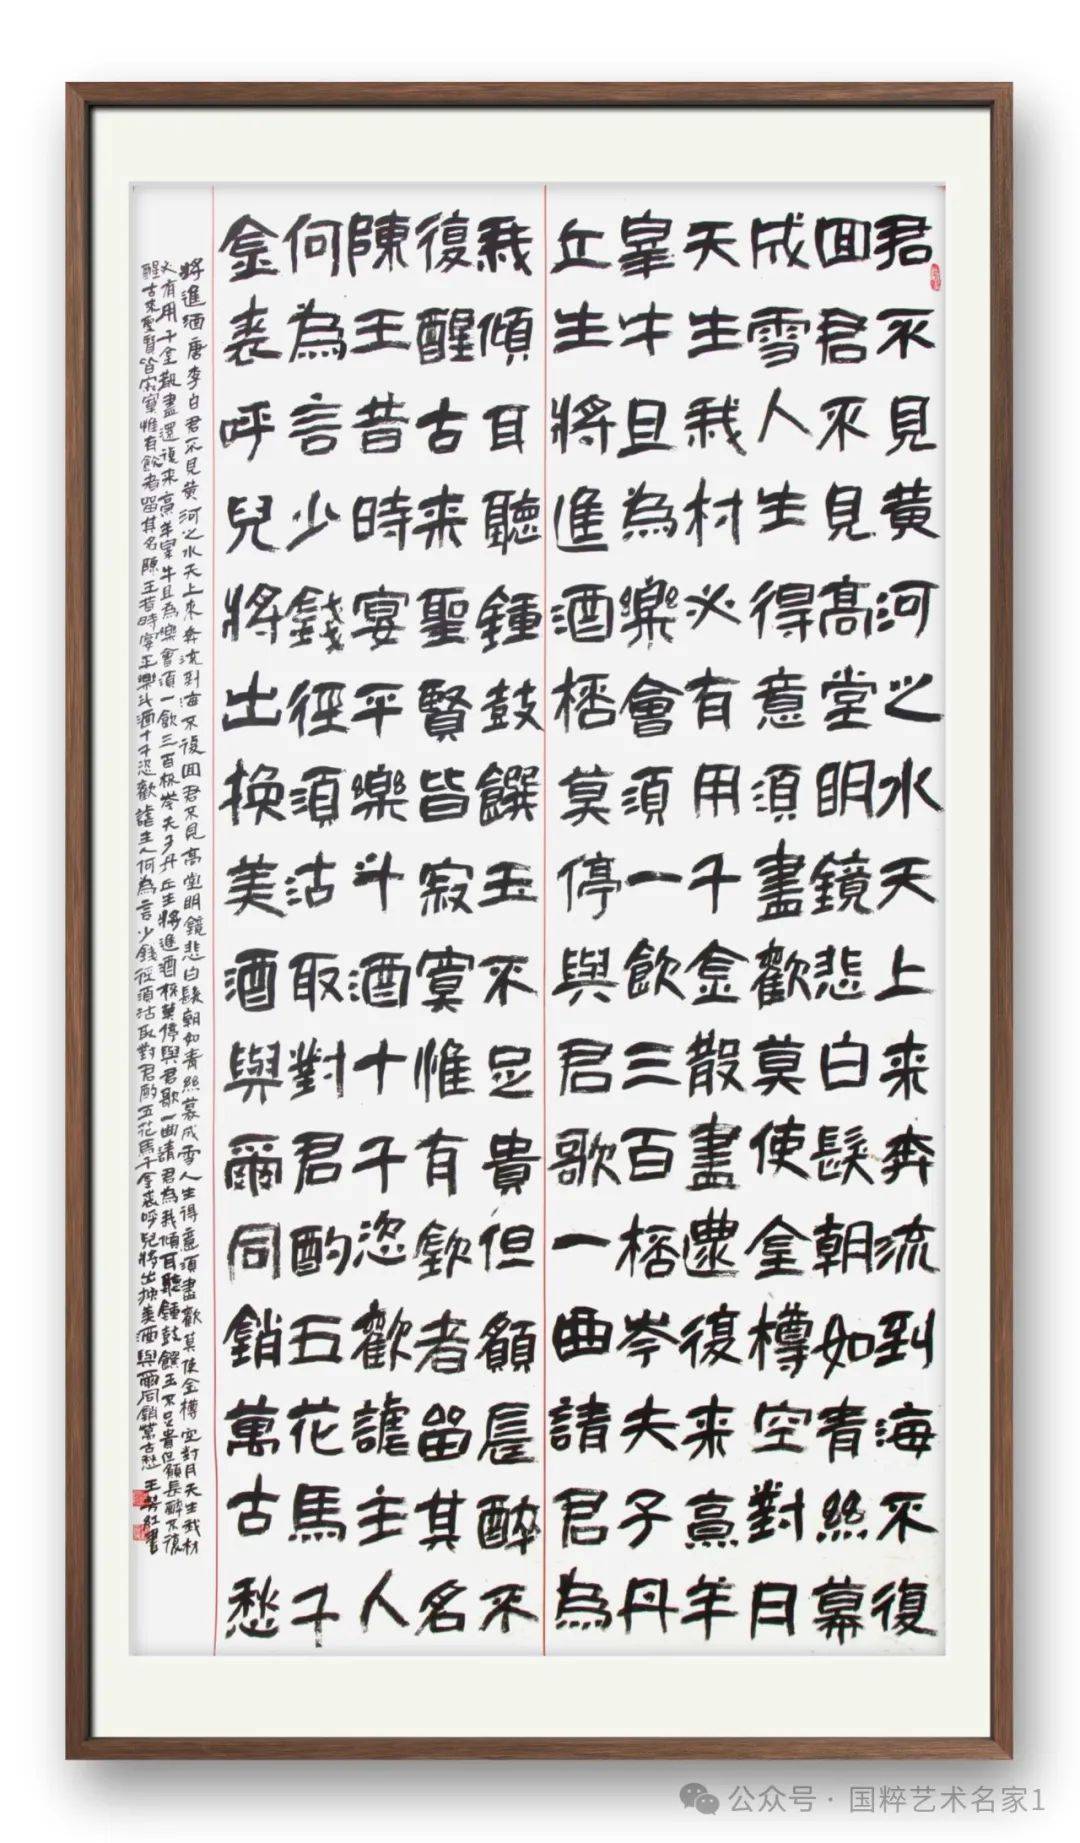 君不見黄河之水天上来奔流到海不復
囬君不見高堂明鏡悲白髮朝如青絲暮
成雪人生得意須盡歡莫使金樽空對月
天生我材必有用千金散盡還復来烹羊
宰牛且為樂會須一飲三百桮岑夫子丹
丘生將進酒桮莫停與君歌一曲請君為
我傾耳聽鍾鼓饌玉不足貴但願長醉不
復醒古来聖賢皆寂寞惟有飲者留其名
陳王昔時宴平樂斗酒十千恣歡謔主人
何為言少錢徑須沽取對君酌五花馬千
金裘呼兒將出換美酒與爾同銷萬古愁
將進酒唐李白君不見黄河之水天上来奔流到海不復囬君不見高堂明鏡悲白髮朝如青絲暮成雪人生得意須盡歡莫使金樽空對月天生我材
必有用千金散盡還復来烹羊宰牛且為樂會須一飲三百杯岑夫子丹丘生將進酒杯莫停與君歌一曲請君為我傾耳聽鍾鼓饌玉不足貴但願長醉不復
醒古来聖賢皆寂寞惟有飲者留其名陳王昔時宴平樂斗酒十千恣歡謔主人何為言少錢徑須沽取對君酌五花馬千金裘呼兒將出換美酒與爾同銷萬古愁 王紅書
公众号·国粹艺术名家1